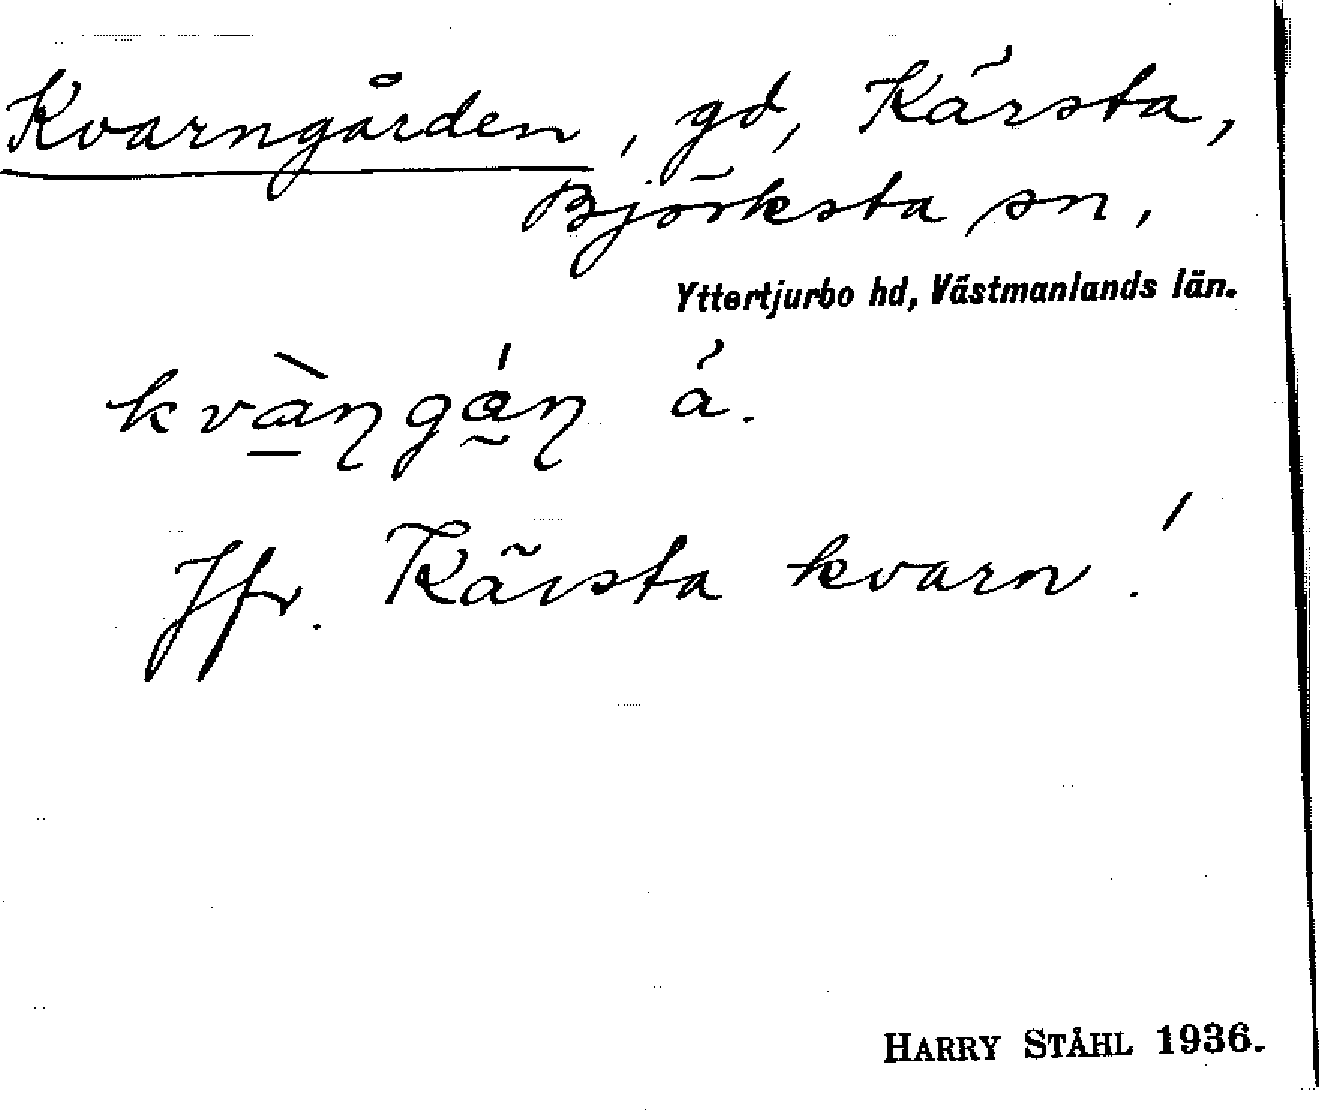 Kvarngården, gd, Kärsta,
Björksta sn,
Yttertjurbo hd, Västmanlands län.
kvàŋgáŋ á.
Jfr. Kärsta kvarn!
HARRY STÅHL 1936.